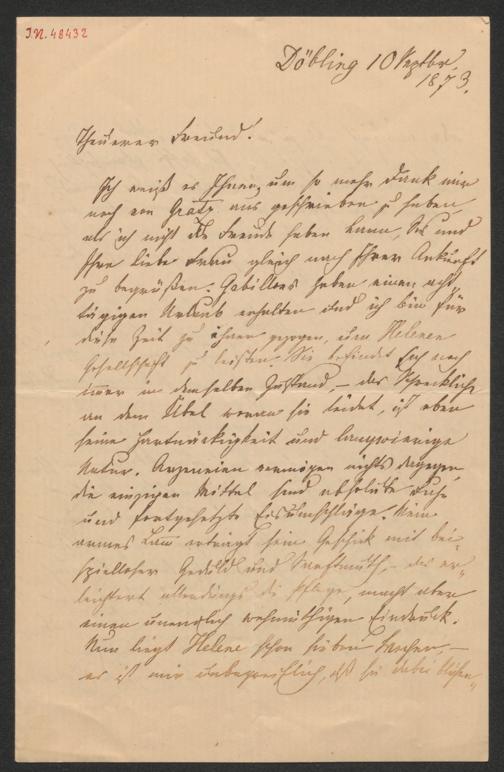 J.N. 48432
Döbling 10 Septbr.
1873.
Theuerer Freund!
Ich weiß es Ihnen, um so mehr Dank mir
noch von Gratz aus geschrieben zu haben,
als ich nicht die Freude haben kann, Sie und
Ihre liebe Frau gleich nach Ihrer Ankunft
zu begrüßen. Gabillons haben einen acht-
tägigen Urlaub erhalten und ich bin für
diese Zeit zu ihnen gezogen, um Helenen
Gesellschaft zu leisten. Sie befindet sich noch
immer in demselben Zustand, – das Schreckliche
an dem Übel woran sie leidet, ist eben
seine Hartnäckigkeit und langwierige
Natur. Arzeneien vermögen nichts dagegen,
die einzigen Mittel sind absolute Ruhe
und fortgesetzte Eisumschläge. Mein
armes erträgt sein Geschick mit bei-
spielloser Geduld und Sanftmuth, – das er-
leichtert allerdings die Pflege, macht aber
einen unendlich wehmüthigen Eindruck.
Nun liegt Helene schon sieben Wochen, –
es ist mir unbegreiflich, daß sie dabei